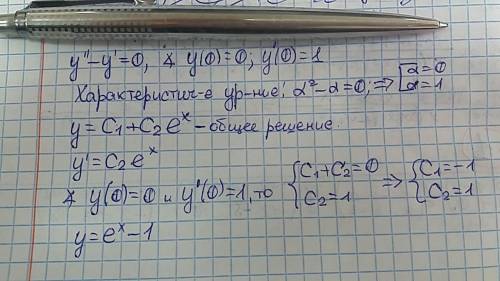 y''-y'=0, ∡ y(0)=0; y'(0)=1
Характеристич-е ур-ние: α²-α=0; ⇒ [α=0 α=1
y=C₁+C₂eˣ - общее решение.
y'=C₂eˣ
∡ y(0)=0 и y'(0)=1, то {C₁+C₂=0 C₂=1 ⇒ {C₁=-1 C₂=1
y=eˣ-1